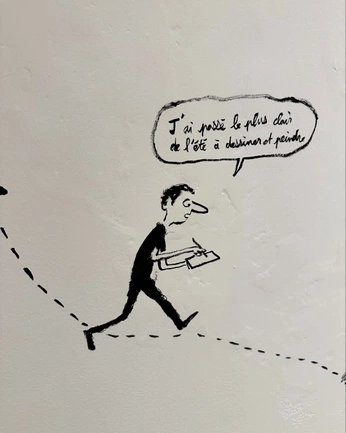 J'ai passé le plus clair
de l'été à dessiner et peindre